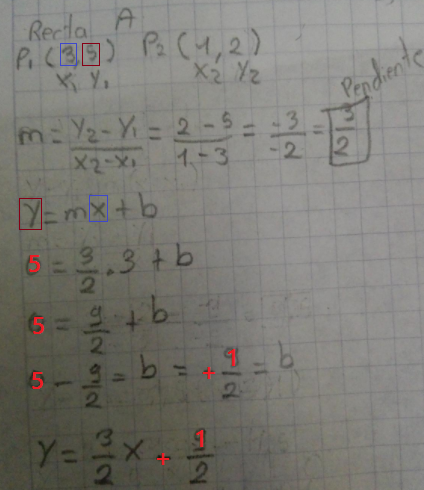 Recta A
P₁ (3,5) P₂ (1,2)
x₁ y₁ x₂ y₂
Pendiente
m = y₂ - y₁ / x₂ - x₁ = 2 - 5 / 1 - 3 = -3 / -2 = 3 / 2
y = mx + b
5 = 3/2 . 3 + b
5 = 9/2 + b
5 - 9/2 = b = + 1/2 = b
y = 3/2 x + 1/2